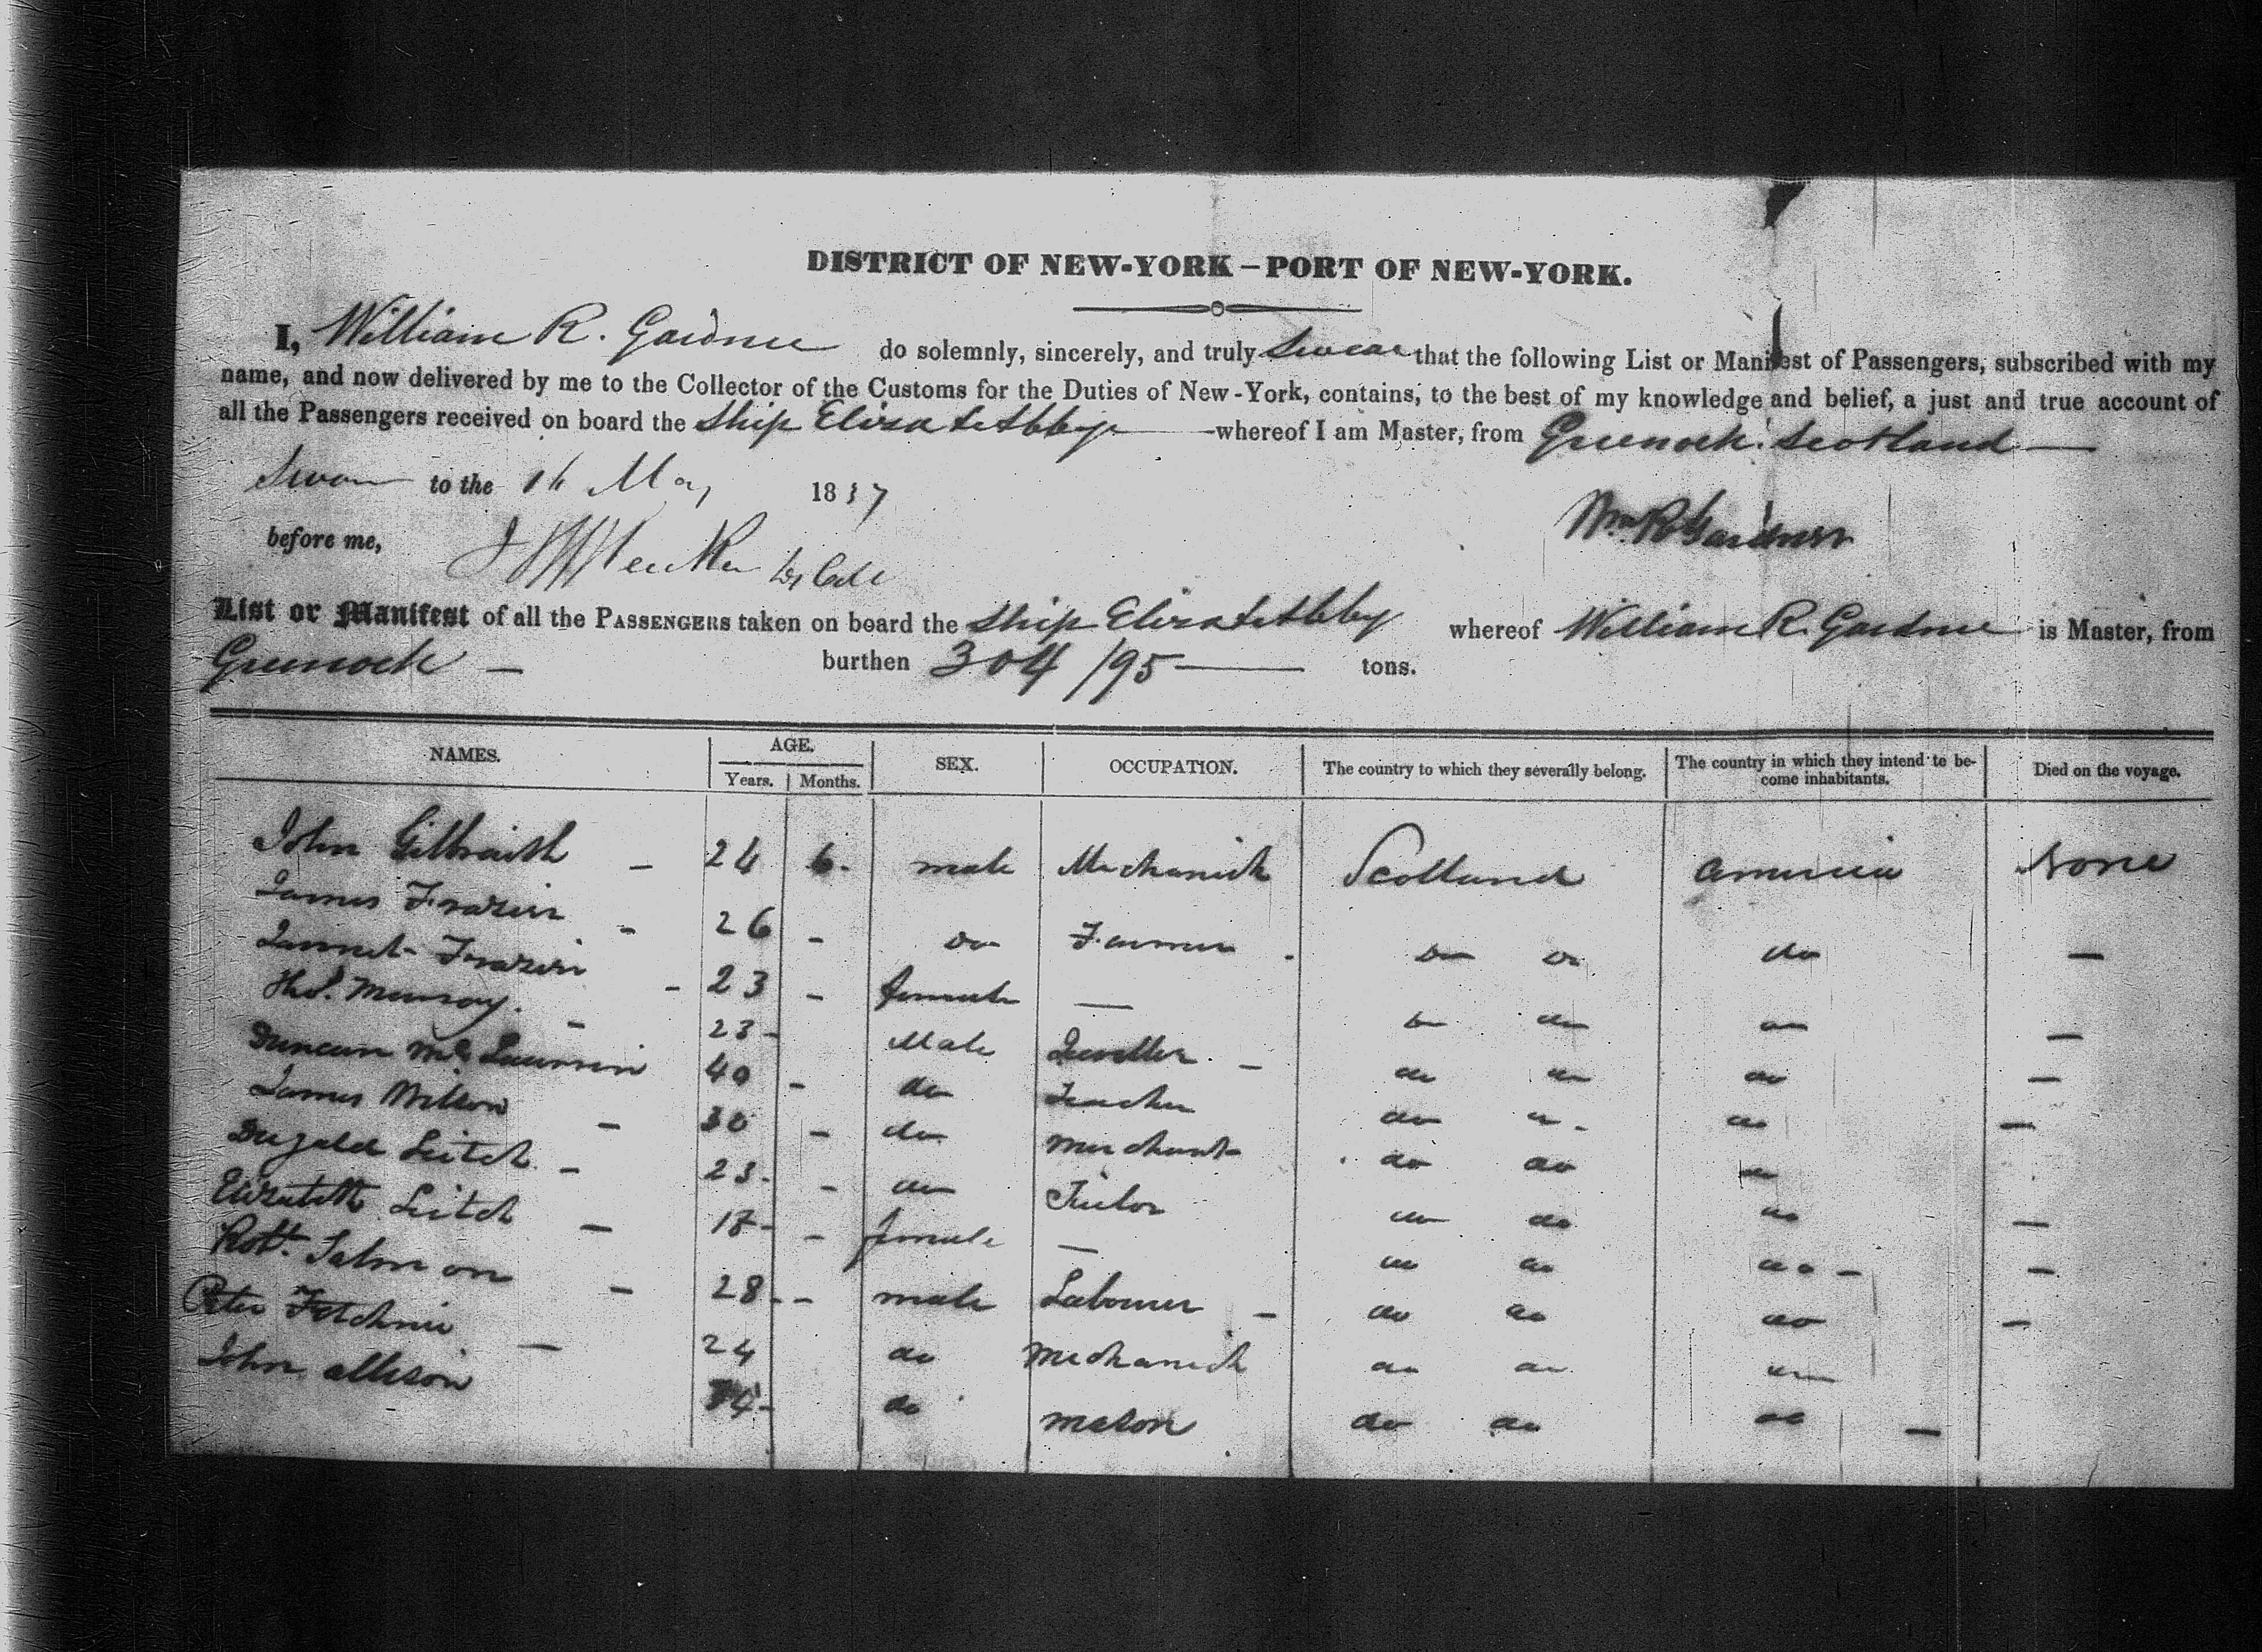 DISTRICT OF NEW-YORK – PORT OF NEW-YORK.
I, William R. Gardner do solemnly, sincerely, and truly Swear that the following List or Manifest of Passengers, subscribed with my
name, and now delivered by me to the Collector of the Customs for the Duties of New-York, contains, to the best of my knowledge and belief, a just and true account of
all the Passengers received on board the Ship Eliza & Abby whereof I am Master, from Greenock Scotland
Sworn to the 16 May 1837
Wm R Gardner
before me,
List or Manifest of all the PASSENGERS taken on board the Ship Eliza & Abby whereof William R. Gardner is Master, from
Greenock — burthen 304/95 tons.
NAMES. AGE. SEX. OCCUPATION. The country to which they severally belong. The country in which they intend to be- Died on the voyage.
Years. Months. come inhabitants.
John Gilbraith – 24 6. male Mechanick Scotland America None
James Frazier – 26 – do Farmer do do do —
Jannet Frazier – 23 – female — do do do —
Thos. Murray. – 23 – Male Jeweller – do do do —
Duncan McLaurin 40 – do Teacher do do do —
James Wilson – 30 – do Merchant do do do
Dugald Leitch – 23 – do Tailor do do do —
Elizabeth Leitch – 18 – female — do do do – —
Robt. Salmon – 28 – – male Labourer – do do do —
Peter – 24 do Mechanick do do do
John Allison 74 – do Mason do do do —